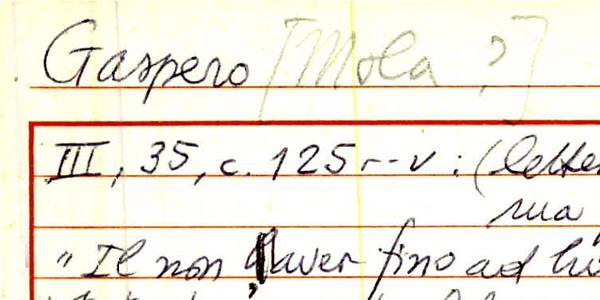 Gaspero [Mola ?]
III, 35, c. 125 r-v : (lette
sua
"Il non haver fino ad